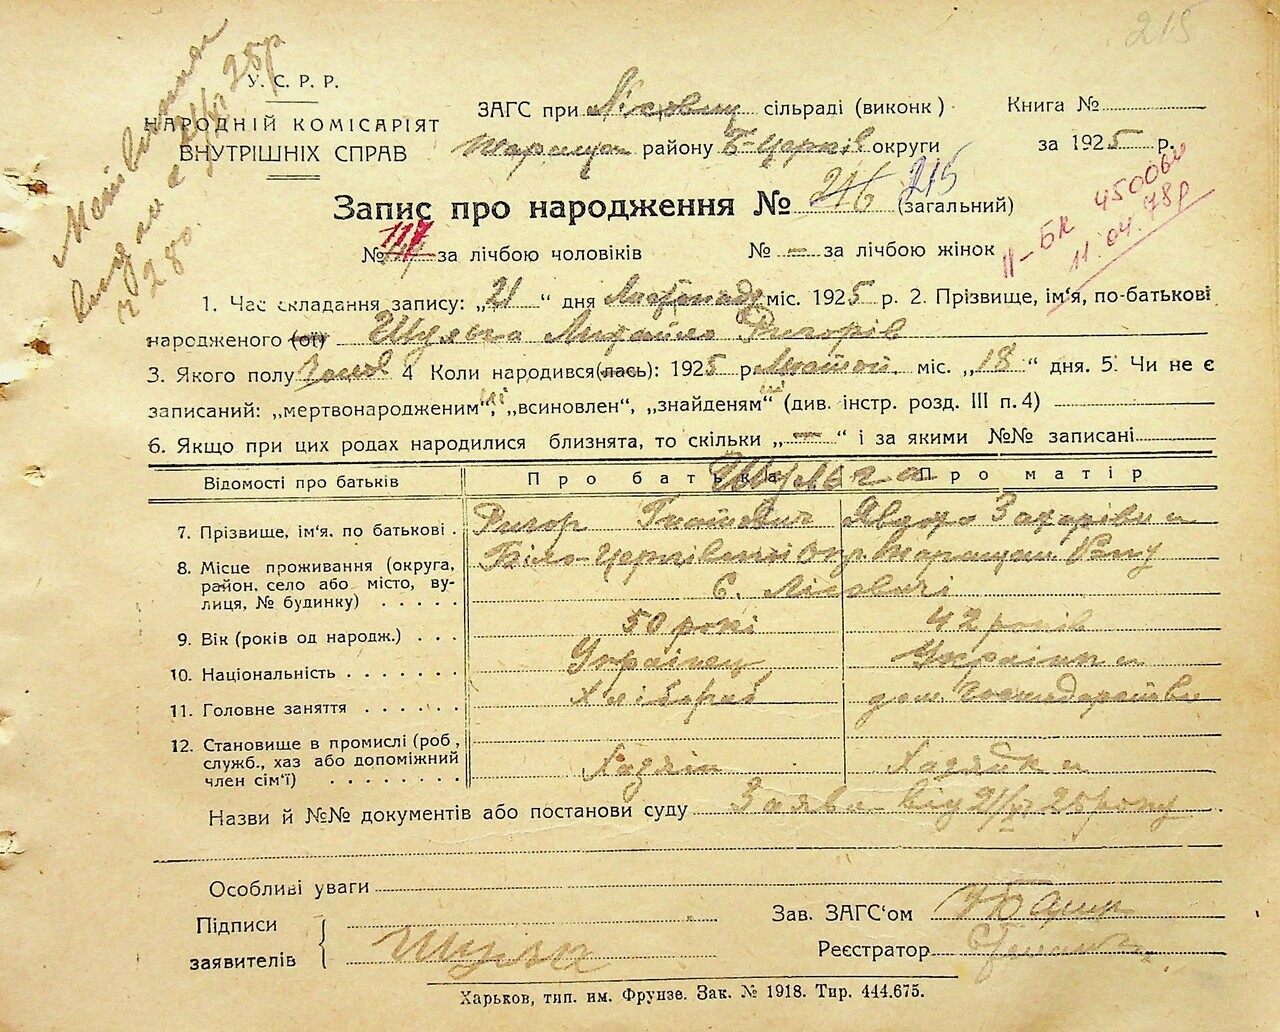 215
У. С. Р. Р.
НАРОДНІЙ КОМІСАРІЯТ
ВНУТРІШНІХ СПРАВ
ЗАГС при Лісович сільраді (виконк)
Таращан району Б-Церків округи
Книга №
за 1925 р.
Запис про народження № 216 215 (загальний)
№ 117 за лічбою чоловіків № — за лічбою жінок
II-БК 450060
11.04.78р
1. Час складання запису: „21“ дня Листопаду міс. 1925 р. 2. Прізвище, ім'я, по-батькові
народженого (ої) Шульга Михайло Григорів
3. Якого полу Чолов 4 Коли народився (лась): 1925 р. міс. „18“ дня. 5. Чи не є
записаний: „мертвонародженим“, „всиновлен“, „знайденям“ (див. інстр. розд. III п. 4)
6. Якщо при цих родах народилися близнята, то скільки „—“ і за якими №№ записані
Відомості про батьків Про батька Про матір
Шульга
7. Прізвище, ім'я, по батькові . Григор Гнатович Явдоха Захарівна
8. Місце проживання (округа, район, село або місто, вулиця, № будинку) . . . . . Біло-Церківської Окр. Таращан. Рну
С. Лісовичі
9. Вік (років од народж.) . . . 50 років 42 років
10. Національність . . . . . . . Українець Українка
11. Головне заняття . . . . . . Хлібороб дом. Господарство
12. Становище в промислі (роб., служб., хаз або допоміжний член сім'ї) . . . . . . . . Хазяїн Хазяйка
Назви й №№ документів або постанови суду Заява від 21/XI 25 року
Особливі уваги
Підписи
заявителів
Шульга
Зав. ЗАГС'ом
Реєстратор
Харьков, тип. им. Фрунзе. Зак. № 1918. Тир. 444.675.